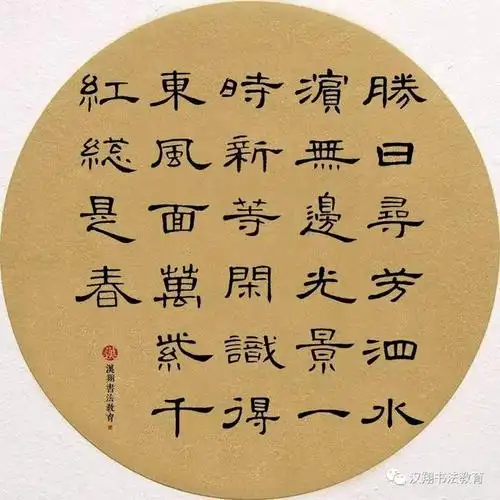 勝日尋芳泗水
濱無邊光景一
時新等閑識得
東風面萬紫千
紅總是春
漢翔書法教育
汉翔书法教育